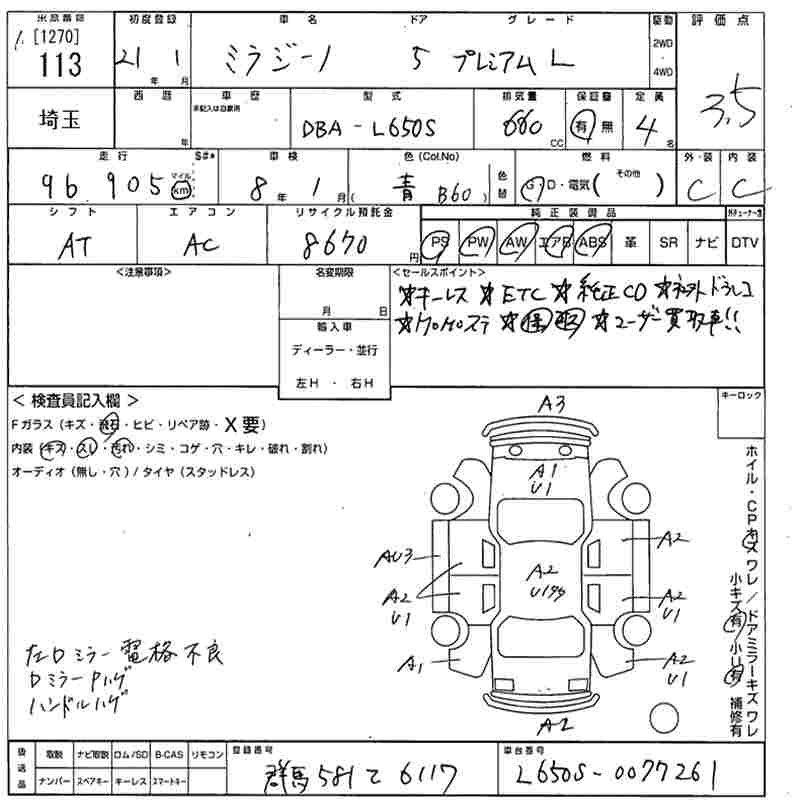 出品番号 初度登録 車名 ドア グレード 駆動 評価点
[1270]
113 21 1 ミラジーノ 5 プレミアム L 2WD・4WD 3.5
年 月
西暦 車歴 型式 排気量 保証書 定員
未記入は自家用
埼玉 年 DBA-L650S 660 CC 有・無 4名
走行 S#* 車検 色(Col.No) 燃料 外・装 内装
96,905 マイル km 8年 1月 ( 青 B60 ) 色替 G・D・電気( その他 ) C C
シフト エアコン リサイクル預託金 純正装備品
AT AC 8670円 PS PW AW エアB ABS 革 SR ナビ DTV
<注意事項> 名変期限 <セールスポイント>
月 日
☆キーレス ☆ETC ☆純正CD ☆ドラレコ
輸入車
☆ユーザー買取車!!
ディーラー・並行
左H ・ 右H
<検査員記入欄> キーロック
Fガラス(キズ・飛石・ヒビ・リペア跡・X要)
内装(キズ・スレ・汚れ・シミ・コゲ・穴・キレ・破れ・割れ)
オーディオ(無し・穴)/タイヤ(スタッドレス)
A3
A1
U1
AU3
A2
A2
U1
A2
U1
A2
U1
A1
A2
U1
A2
ホイル・CPキズワレ/ドアミラーキズワレ
小キズ有 小U有 補修有
左Dミラー電格不良
DミラーPハゲ
ハンドルハゲ
後送品 取説 ナビ取説 ロム/SD B-CAS リモコン 登録番号 車台番号
ナンバー スペアキー キーレス スマートキー 群馬 581 て 6117 L650S-0077261